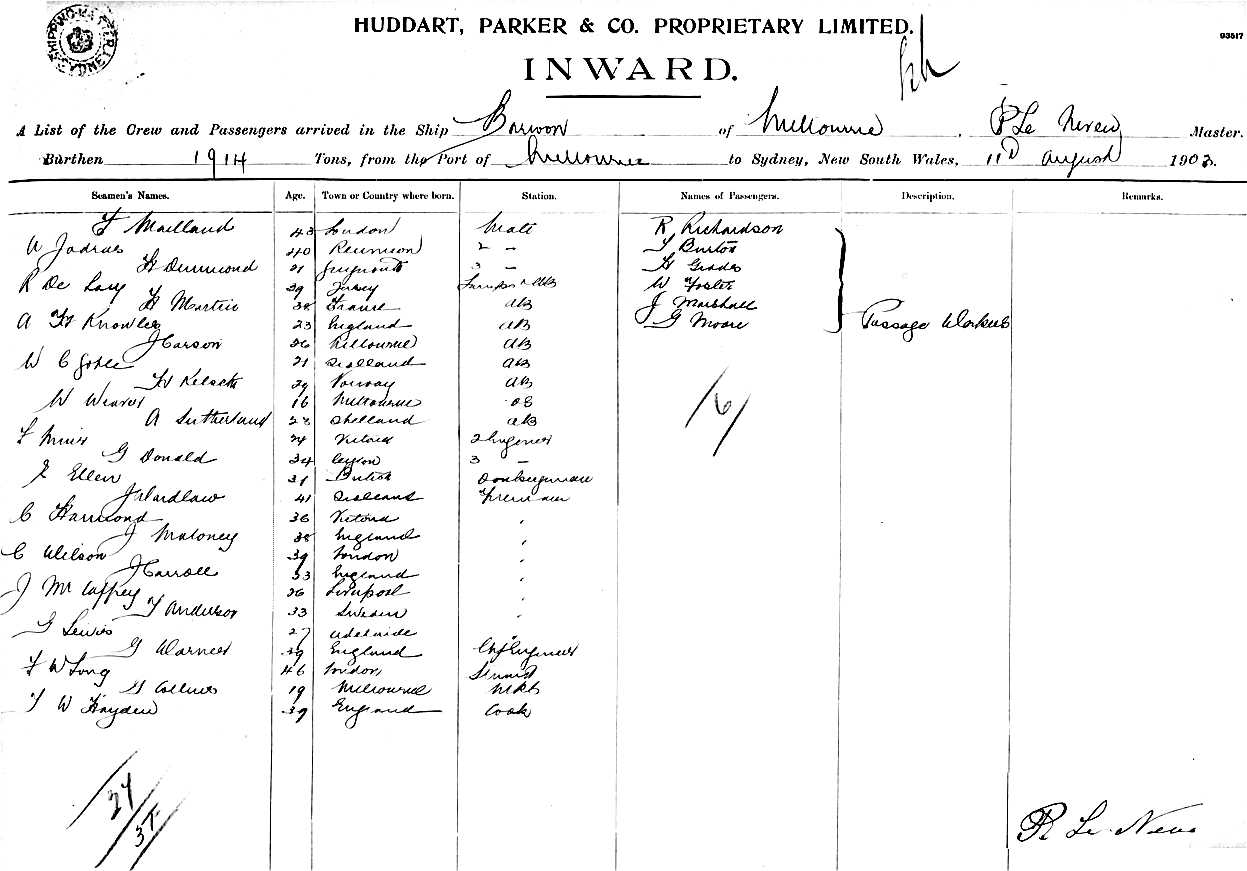 SHIPPING MASTER SYDNEY
HUDDART, PARKER & CO. PROPRIETARY LIMITED.
93517
INWARD.
A List of the Crew and Passengers arrived in the Ship Barwon of Melbourne, R Le Neveu Master.
Burthen 1914 Tons, from the Port of Melbourne to Sydney, New South Wales, 11th August 1902.
Seamen's Names. Age. Town or Country where born. Station. Names of Passengers. Description. Remarks.
F Mailland 43 London Mate R Richardson
A 40 Reunion 2 - T Burton
H Drummond 21 3 - H
R De 29 Jersey Lamps & AB W Foster
H Martin 38 France AB J Marshall
A H Knowles 23 England AB G Moore Passage Workers
J Carson 26 Melbourne AB
W C 21 AB
H 29 Norway AB
W Weaver 16 Melbourne OS
A Sutherland 28 Shetland AB
F 24 Victoria 2 Engineer
G Donald 34 Ceylon 3 -
Ellen 31 British Donkeyman
J Wardlaw 41 Fireman
C Hammond 36 Victoria
J Maloney 38 England
C Wilson 39 London
J Carroll 53 England
J McCaffrey 26 Liverpool
T Anderson 33 Sweden
G Lewis 27 Adelaide
G Warner 39 England Chf Engineer
F W Long 46 London Steward
H Collins 19 Melbourne
T W Hayden 39 England Cook
6
27
R Le Neveu